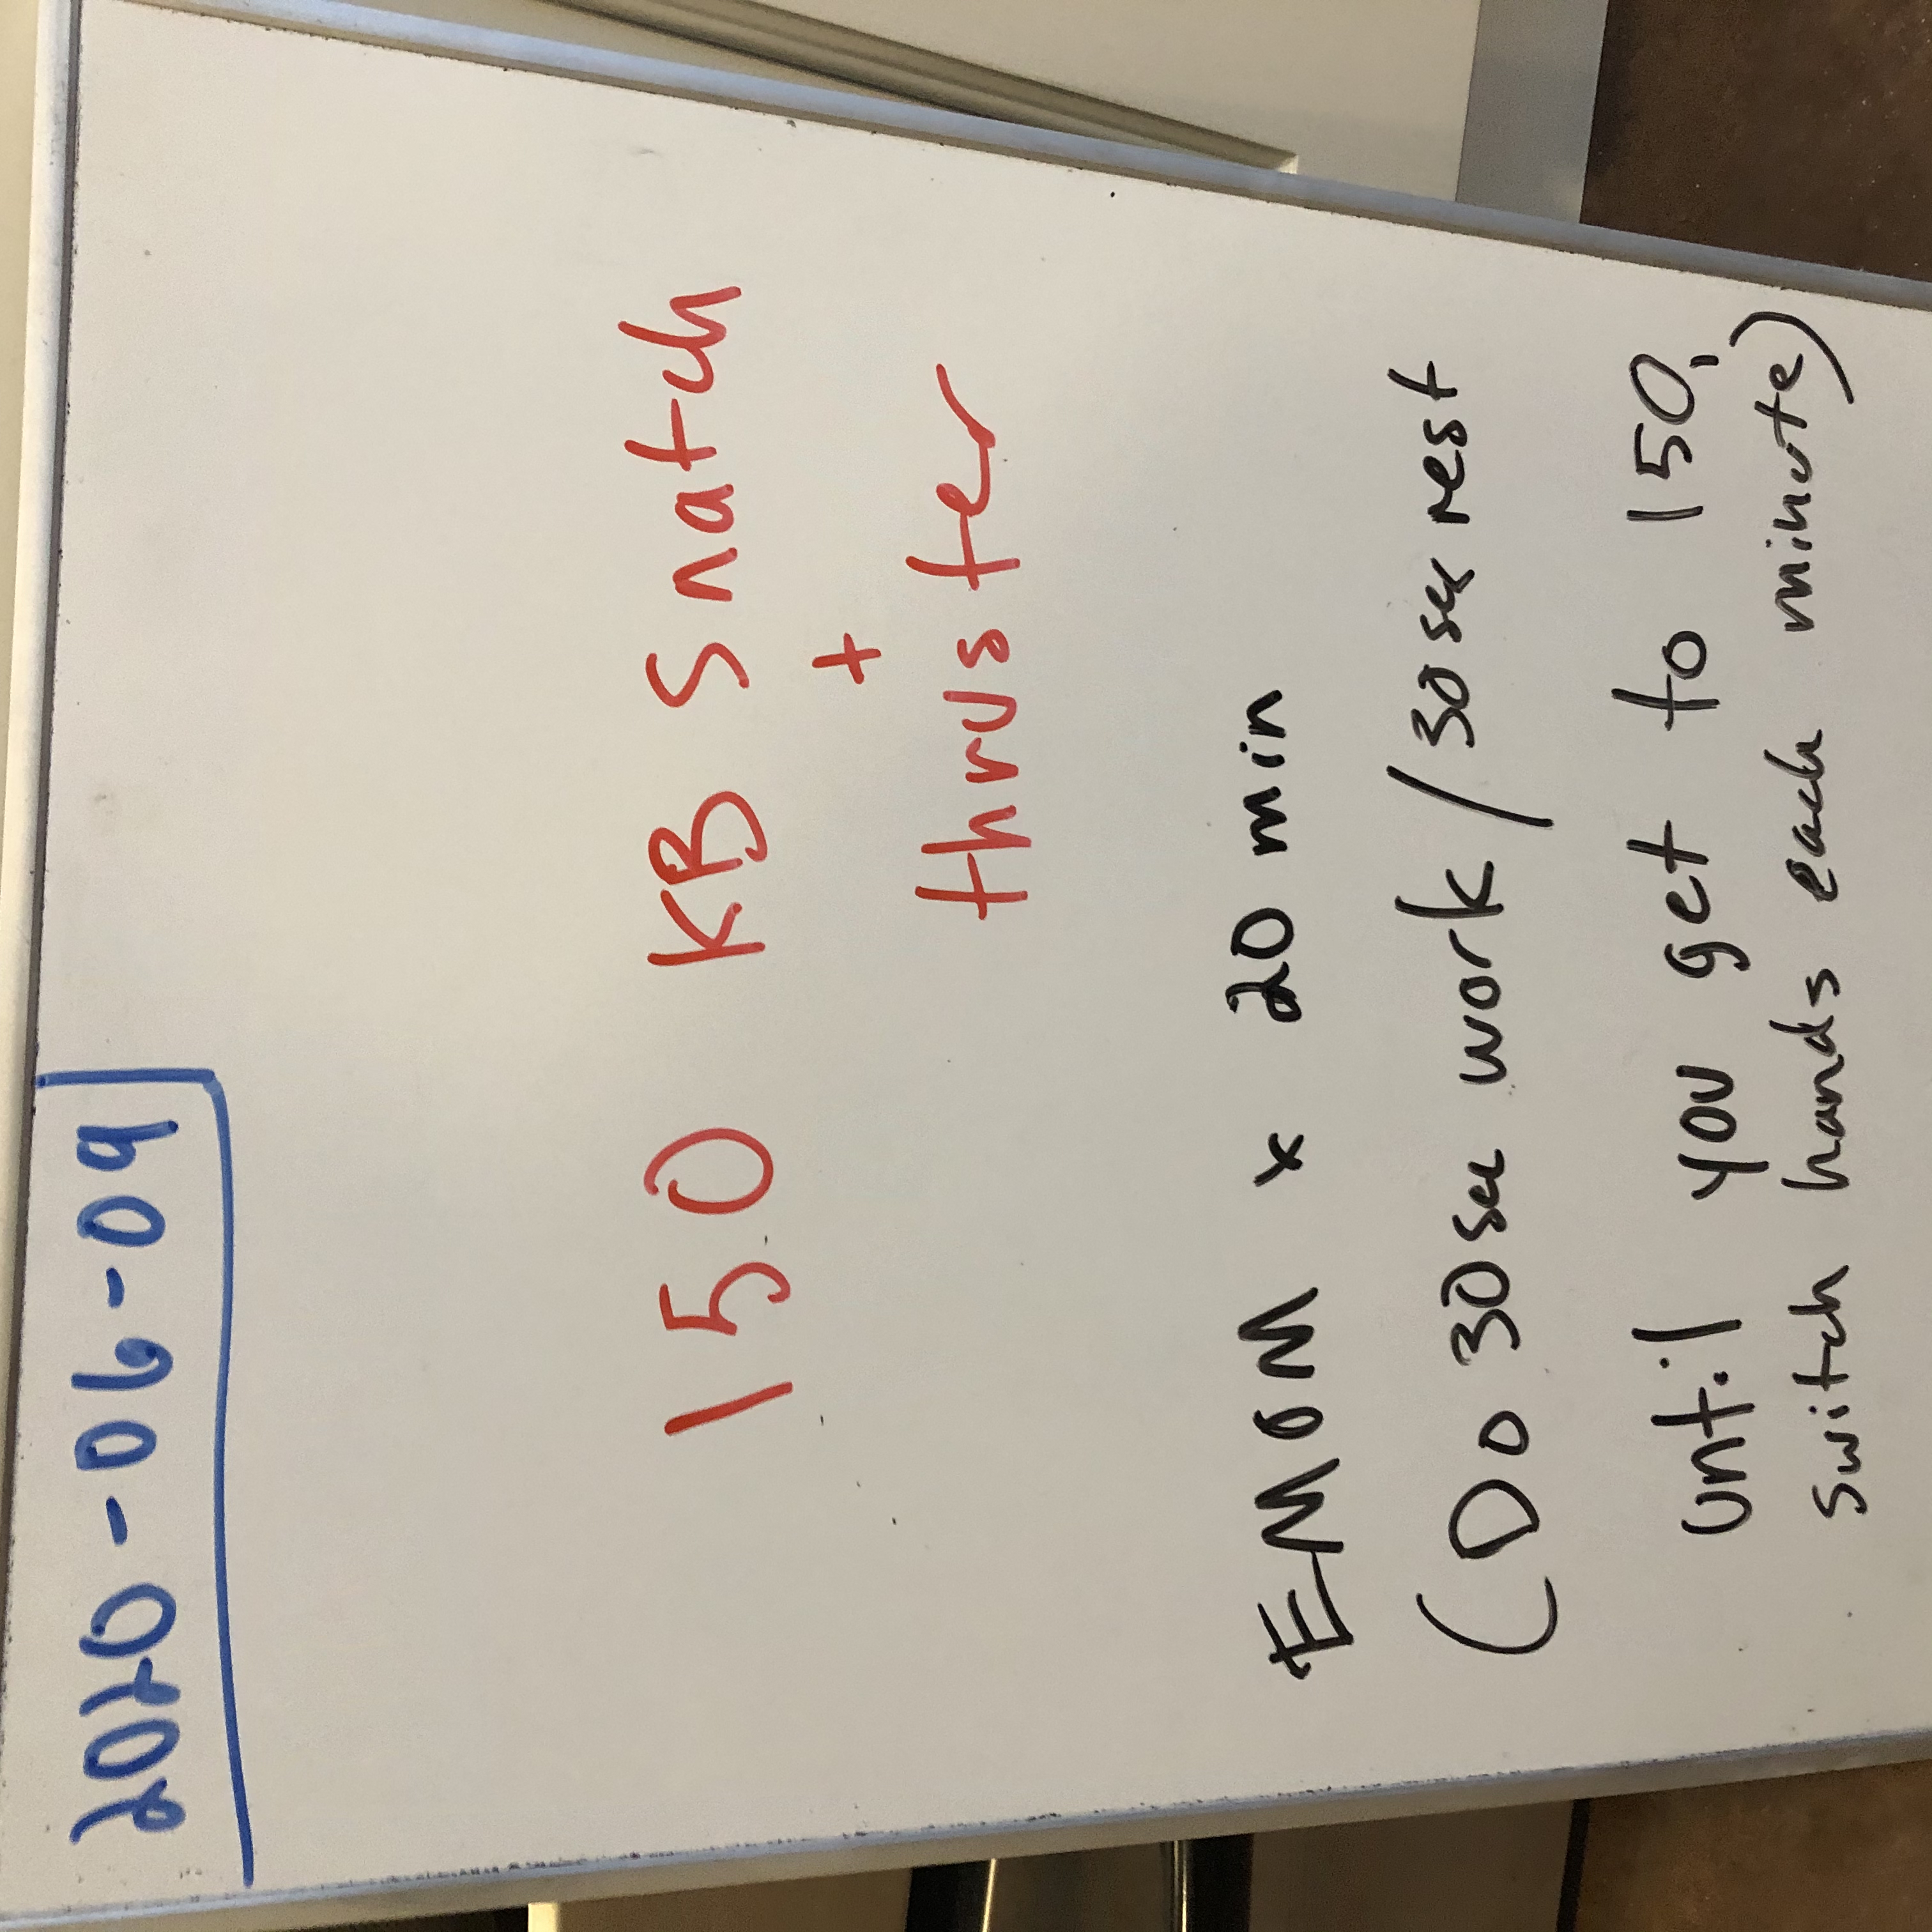 2020-06-09
150 KB Snatch
+
thruster
EMOM x 20 min
(Do 30sec work / 30 sec rest
until you get to 150,
switch hands each minute)